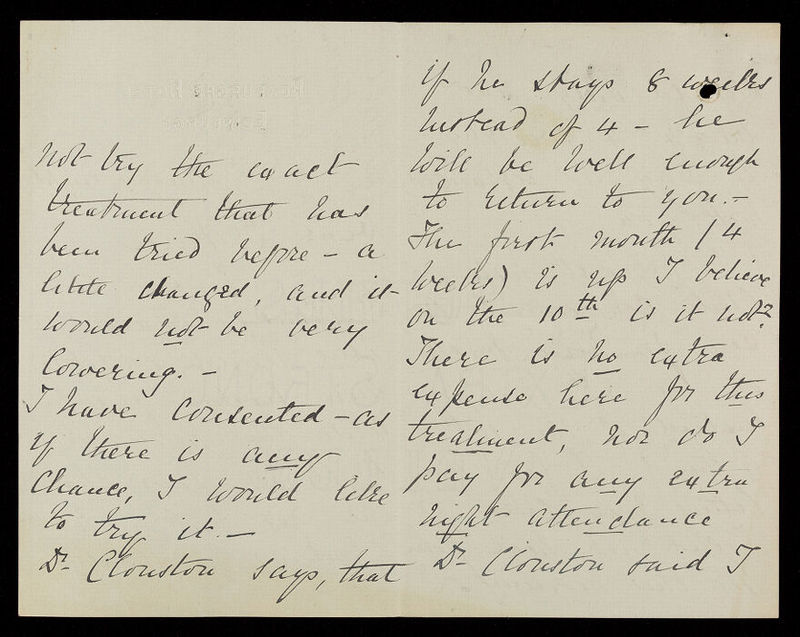 not try the exact
treatment that has
been tried before - a
little changed, and it
would not be very
lowering. -
I have consented - as
if there is any
chance, I would like
to try it. -
Dr. Clouston says, that
if he stays 8 weeks
instead of 4 - he
will be well enough
to return to you. -
The first month (4
weeks) is up I believe
on the 10th is it not?
There is no extra
expense here for this
treatment, nor do I
pay for any extra
night attendance
Dr. Clouston said I